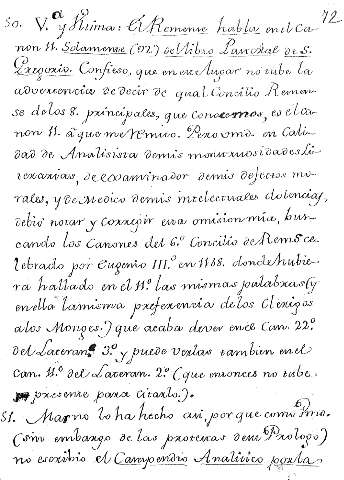 72
50. V.ª y Ultima: El Remense habla en el Ca
non 11. Solamense (92) del libro Pastoral de S.
Gregorio. Confieso, que en este lugar no tube la
advertencia de decir de qual Concilio Remen
se de los 8. principales, que conocemos, es el ca
non 11. à que me remito. Pero Vmd. en Cali
dad de Analisista de mis monstruosidades Li
terarias, de examinador de mis defectos mo
rales, y de Medico de mis intelectuales dolencias,
debiò notar y corregir esta omision mia, bus
cando los Canones del 6.º Concilio de Rems ce
lebrado por Eugenio III.º en 1148. donde hubie
ra hallado en el 11.º las mismas palabras (y
en ella la misma preferencia de los Clerigos
a los Monges.) que acaba de ver en el Can. 22.º
del Lateran.º 3.º, y puede verlas tambien en el
Can. 11.º del Lateran. 2.º (que entonces no tube
presente para citarlo.).
51. Mas no lo ha hecho asi, por que como Vmd.
(sin embargo de las protestas de su Prologo)
no escribiò el Compendio Analitico por la